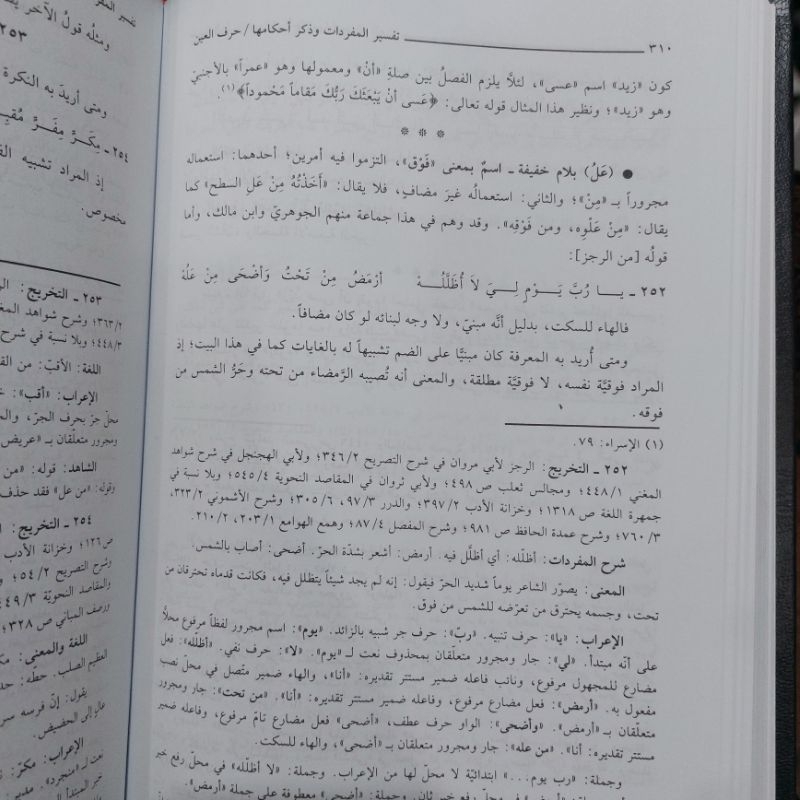 ٣١٠ تفسير المفردات وذكر أحكامها / حرف العين
كون «زيد» اسم «عسى»، لئلَّا يلزم الفصلُ بين صلةِ «أنْ» ومعمولها وهو «عمراً» بالأجنبيّ
وهو «زيد»؛ ونظير هذا المثال قوله تعالى: ﴿عَسى أنْ يَبْعَثَكَ رَبُّكَ مَقاماً مَحْموداً﴾(١).
* * *
● (عَلُ) بلام خفيفة ـ اسمٌ بمعنى «فَوْق»، التزموا فيه أمرين؛ أحدهما: استعماله
مجروراً بـ «مِنْ»؛ والثاني: استعمالُه غيرَ مضافٍ، فلا يقال: «أَخَذْتُهُ مِنْ عَلِ السطح» كما
يقال: «مِنْ عُلْوِه، ومن فَوْقِه». وقد وهم في هذا جماعة منهم الجوهريّ وابن مالك، وأما
قولُه [من الرجز]:
٢٥٢ ـ يـا رُبَّ يَـوْمٍ لـي لاَ أُظَلَّلُـهْ أرْمَضُ مِنْ تَحْتُ وَأَضْحَى مِنْ عَلُهْ
فالهاء للسكت، بدليل أنَّه مبنيّ، ولا وجه لبنائه لو كان مضافاً.
ومتى أُريد به المعرفة كان مبنيًّا على الضم تشبيهاً له بالغايات كما في هذا البيت؛ إذ
المراد فوقيَّة نفسه، لا فوقيَّة مطلقة، والمعنى أنه تُصيبه الرَّمضاء من تحته وحَرُّ الشمس من
فوقه.
(١) الإسراء: ٧٩.
٢٥٢ ـ التخريج: الرجز لأبي مروان في شرح التصريح ٣٤٦/٢؛ ولأبي الهجنجل في شرح شواهد
المغني ٤٤٨/١؛ ومجالس ثعلب ص ٤٨٩؛ ولأبي ثروان في المقاصد النحوية ٥٤٥/٤؛ وبلا نسبة في
جمهرة اللغة ص ١٣١٨؛ وخزانة الأدب ٣٩٧/٢؛ والدرر ٩٧/٣، ٣٠٥/٦؛ وشرح الأشموني ٣٢٣/٢،
٧٦٠/٣؛ وشرح عمدة الحافظ ص ٩٨١؛ وشرح المفصل ٨٧/٤؛ وهمع الهوامع ٢٠٣/١، ٢١٠/٢.
شرح المفردات: أظلّله: أي أظلَّل فيه. أرمض: أشعر بشدّة الحرّ. أضحى: أصاب بالشمس.
المعنى: يصوّر الشاعر يوماً شديد الحرّ فيقول: إنه لم يجد شيئاً يتظلل فيه، فكانت قدماه تحترقان من
تحت، وجسمه يحترق من تعرّضه للشمس من فوق.
الإعراب: «يا»: حرف تنبيه. «ربّ»: حرف جر شبيه بالزائد. «يوم»: اسم مجرور لفظاً مرفوع محلاًّ
على أنّه مبتدأ. «لي»: جار ومجرور متعلّقان بمحذوف نعت لـ «يوم». «لا»: حرف نفي. «أظلله»: فعل
مضارع للمجهول مرفوع، ونائب فاعله ضمير مستتر تقديره: «أنا»، والهاء ضمير متّصل في محلّ نصب
مفعول به. «أرمض»: فعل مضارع مرفوع، وفاعله ضمير مستتر تقديره: «أنا». «من تحت»: جار ومجرور
متعلّقان بـ «أرمض». «وأضحى»: الواو حرف عطف، «أضحى» فعل مضارع تامّ مرفوع، وفاعله ضمير
مستتر تقديره: أنا». «من عله»: جار ومجرور متعلقان بـ «أضحى»، والهاء للسكت.
وجملة: «رب يوم...» ابتدائيّة لا محلّ لها من الإعراب. وجملة: «لا أظلّله» في محلّ رفع خبر
في محلّ رفع خبر ثان. وجملة: «أضحى» معطوفة على جملة «أرمض».
ومثلُه قولُ الآخر
٢٥٣
ومتى أريدَ به النكرة
٢٥٤ ـ مِكَرٍّ مِفَرٍّ
إذ المراد تشبيه
مخصوص.
٢٥٣ ـ التخريج:
٣٦٣/٢؛ وشرح شواهد
٤٤٨/٣؛ وبلا نسبة في
اللغة: الأقبّ: من
الإعراب: «أقب»:
محلّ جرّ بحرف الجرّ،
ومجرور متعلّقان بـ «عريض
الشاهد: قوله: «من
وقوله: «من عل» فقد حذف
٢٥٤ ـ التخريج:
ص ١٢٦؛ وخزانة الأدب
وشرح التصريح ٥٤/٢؛
والمقاصد النحوية
ورصف المباني ص ٣٢٨
اللغة والمعنى:
العظيم الصلب. حطّه:
يقول: إنّ فرسه
عالٍ إلى الحضيض.
الإعراب: مكرّ:
نعت لـ «منجرد».